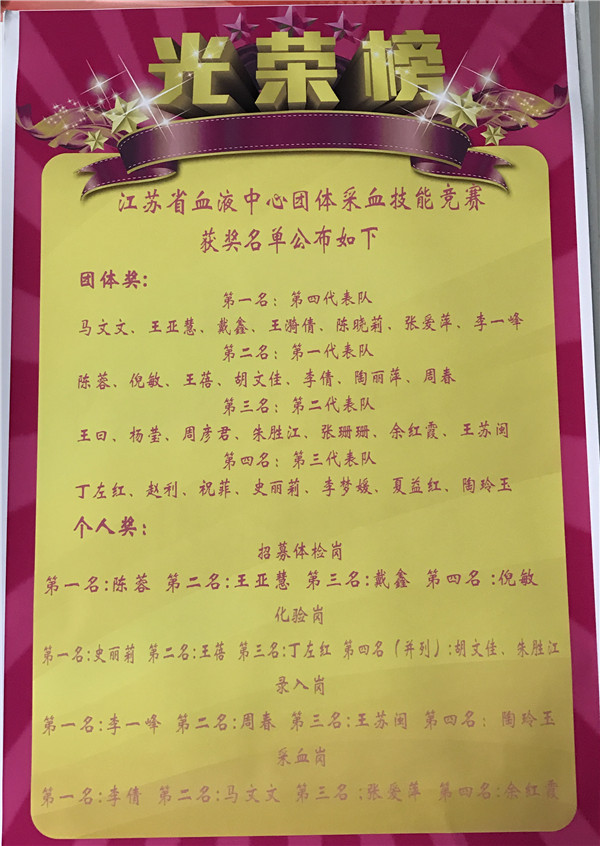 光荣榜
江苏省血液中心团体采血技能竞赛
获奖名单公布如下
团体奖:
第一名: 第四代表队
马文文、王亚慧、戴鑫、王漪倩、陈晓莉、张爱萍、李一峰
第二名: 第一代表队
陈蓉、倪敏、王蓓、胡文佳、李倩、陶丽萍、周春
第三名: 第二代表队
王曰、杨莹、周彦君、朱胜江、张珊珊、余红霞、王苏闽
第四名: 第三代表队
丁左红、赵利、祝菲、史丽莉、李梦媛、夏益红、陶玲玉
个人奖:
招募体检岗
第一名:陈蓉 第二名:王亚慧 第三名:戴鑫 第四名:倪敏
化验岗
第一名:史丽莉 第二名:王蓓 第三名:丁左红 第四名(并列):胡文佳、朱胜江
录入岗
第一名:李一峰 第二名:周春 第三名:王苏闽 第四名: 陶玲玉
采血岗
第一名:李倩 第二名:马文文 第三名:张爱萍 第四名:余红霞